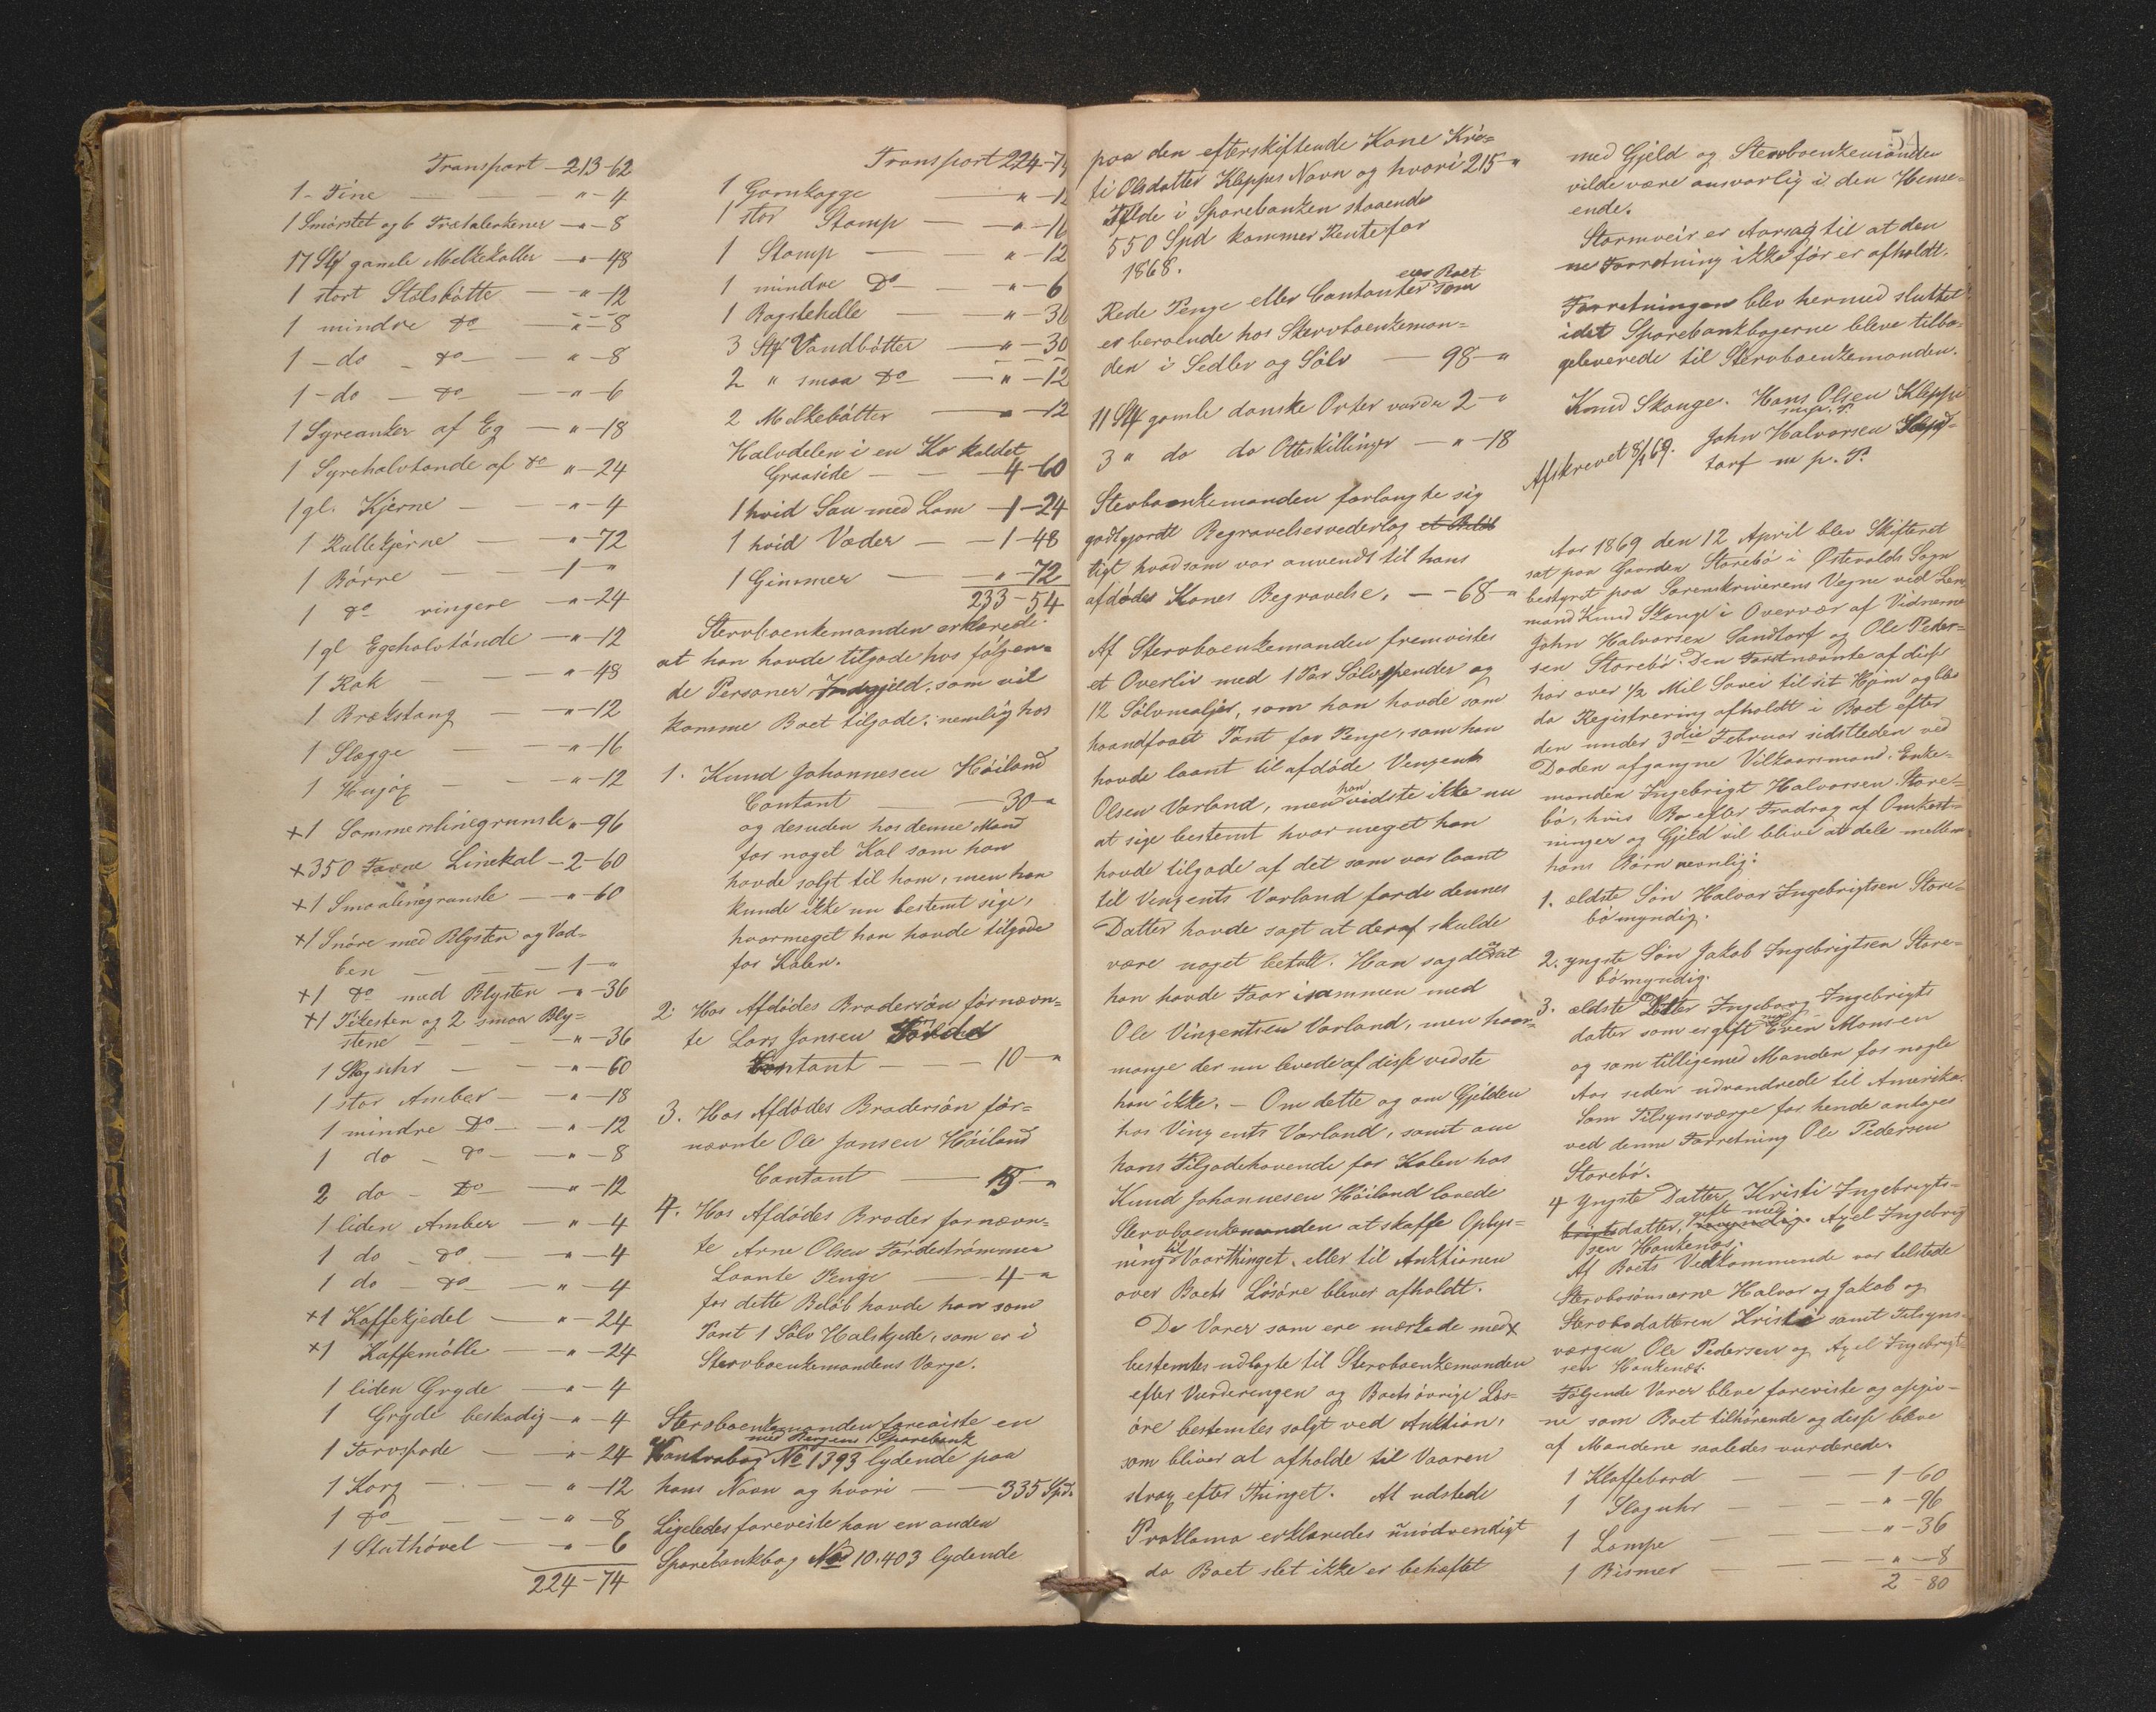 Transport – 213-62
1 - Tine — " - 4
1 Smörstet og 6 Trætalerkener — " - 8
17 Stk gamle Melkekoller — " - 48
1 stort Stölsbötte — " - 12
1 mindre do — " - 8
1 - do - do — " - 8
1 - do - do — " - 6
1 Syreanker af Eg — " - 18
1 Syrehalvtønde af do " - 24
1 gl. Kjerne — " - 4
1 Rullekjerne — " - 72
1 Börre — 1 - "
1 do ringere — " - 24
1 gl Egehalvtönde — " - 12
1 Rok — " - 48
1 Brækstang — " - 12
1 Slægge — " - 16
1 — " - 12
+1 Sommerslinegrunsle " - 96
+350 Favne Linekal - 2 - 60
+1 Smaalinegrunsle — " - 60
+1 Snöre med Blysten og Vad-
ben — 1 - "
+1 do med Blysten — " - 36
+1 Pikesten og 2 smaa Bly=
stene — " - 36
1 Slaguhr — " - 60
1 stor Amber — " - 18
1 mindre Do — " - 12
1 do - do — " - 8
2 do - Do — " - 12
1 liden Amber — " - 4
1 do - do — " - 4
1 do - do — " - 4
+1 Kaffekjedel — " - 24
+1 Kaffemölle — " - 24
1 liden Gryde — " - 4
1 Gryde beskadig — " - 4
1 Torvspade — " - 24
1 Korg — " - 12
1 do — " - 8
1 Stuthövel — " - 6
224 - 74
Transport 224-74
1 Garnkagge — " - 12
1 stor Stamp — " - 16
1 Stamp — " - 12
1 mindre Do — " - 6
1 Bagstehelle — " - 36
3 Stk Vandbötter — " - 30
2 " smaa do — " - 12
2 Melkebötter — " - 12
Halvdelen i en Ko kaldet
Graaside — 4 - 60
1 hvid Sau med Lam — 1 - 24
1 hvid Væder — 1 - 48
1 Gimmer — " - 72
233 - 54
Stervboenkemanden erklærede:
at han havde tilgode hos fölgen=
de Personer Indgjeld, som vil
komme Boet tilgode: nemlig hos
1. Knud Johannesen Höiland
Contant — 30 - "
og desuden hos denne Mand
for noget Kal som han
havde solgt til ham, men han
kunde ikke nu bestemt sige,
hvormeget han havde tilgode
for Kalen.
2. Hos Afdödes Brodersön fornævn=
te Lars Jansen Förde
Contant — 10 - "
3. Hos Afdödes Brodersön för=
nævnte Ole Jansen Höiland
Contant — 15 - "
4. Hos Afdödes Broder fornævn=
te Arne Olsen Fördeströmmen
Laante Penge — 4 - "
for dette Belöb havde han som
Pant 1 Sölv Halskjede, som er i
Stervboenkemandens Værge.
Stervboenkemanden foreviste en
med Bergens Sparebank
Kontrabog No 1393 lydende paa
hans Navn og hvori — 335 Spd.
Ligeledes foreviste han en anden
Sparebankbog No 10.403 lydende
paa den efterskiftende Kone Kri=
ti Olsdatter Klepps Navn og hvori 215 - "
Tilde i Sparebanken staaende
550 Spd kommer Rente for
1868.
Rede Penge eller Contanter som
eier Boet
er beroende hos Stervboenkeman=
den i Sedler og Sölv — 98 - "
11 Stk gamle danske Orter vurder 2 - "
3 " do do Otteskillinger — " - 18
Stervboenkemanden forlangte sig
godtgjordt Begravelsesvederlag et Belöb
ligt hvad som var anvendt til hans
afdödes Kones Begravelse. — 68 - "
Af Stervboenkemanden fremvistes
et Overliv med 1 Par Sölvspender og
12 Sölvmaljer, som han havde som
haandfaaet Pant for Penge, som han
havde laant til afdöde Vingents
Olsen Varland, men han vidste ikke nu
at sige bestemt hvor meget han
havde tilgode af det som var laant
til Vingents Varland fordi dennes
Datter havde sagt at deraf skulde
være noget betalt. Han sagde at
han havde Faar i sammen med
Ole Vingentsen Varland, men hvor=
mange der nu levede af disse vidste
han ikke. – Om dette og om Gjelden
hos Vingents Varland, samt om
hans Tilgodehavende for Kalen hos
Knud Johannesen Höiland lovede
Stervboenkemanden at skaffe Oplys=
ning til Vaarthinget, eller til Auktionen
over Boets Lösöre bliver afholdt.
De Varer som ere mærkede med x
bestemtes udlagte til Stervboenkemanden
efter Vurderingen og Boets övrige Lös=
öre bestemtes solgt ved Auktion,
som bliver at afholde til Vaaren
strax efter Thinget. At udstede
Proklama erklæredes unödvendigt
da Boet slet ikke er behæftet
54
med Gjeld og Stervboenkemanden
vilde være ansvarlig i den Hense-
ende.
Stormveir er Aarsag til at den
ne Forretning ikke för er afholdt.
Forretningen blev hermed sluttet
idet Sparebankbogerne bleve tilba-
geleverede til Stervboenkemanden.
Knud Skauge. Hans Olsen Kleppe
m. p. P.
Afskrevet 8/4 69. John Halvorsen Sand=
torf m. p. P.
Aar 1869 den 12 April blev Skifteret
sat paa Gaarden Storebö i Østevolds Sogn
bestyret paa Sorenskriverens Vegne ved Len
mand Knud Skauge i Overvær af Vidnerne
John Halvorsen Sandtorf og Ole Peder=
sen Storebö. Den Forstnævnte af disse
har over 1/2 Mil Sövei til sit Hjem og blev
da Registrering afholdt i Boet efter
den under 3die Februar sidstleden ved
Döden afgangne Vilkaarsmand. Enke-
manden Ingebrigt Halvorsen Store-
bö, hvis Bo efter Fradrag af Omkost=
ninger og Gjeld vil blive at dele mellem
hans Börn nemlig:
1. ældste Sön Halvor Ingebrigtsen Store-
bö myndig.
2. yngste Sön Jakob Ingebrigtsen Store-
bö myndig.
3. ældste Datter Ingeborg Ingebrigts
datter som er gift med Even Monsen
og som tilligemed Manden for nogle
Aar siden udvandrede til Amerika.
Som Tilsynsværge for hende antoges
ved denne Forretning Ole Pedersen
Storebö.
4 Yngste Datter Kristi Ingebrigts-
brigtsdatter, myndig. gift med Axel Ingebrig
sen Haukenæs.
Af Boets Vedkommende var tilstede
Stervbosönnerne Halvor og Jakob og
Stervbodatteren Kristi samt Tilsyns-
værgen Ole Pedersen og Axel Ingebrigt
sen Haukenæs.
Fölgende Varer bleve foreviste og opgiv-
ne som Boet tilhörende og disse bleve
af Mændene saaledes vurderede.
1 Klaffebord — 1 - 60
1 Slaguhr — " - 96
1 Lampe — " - 36
1 Bismer — " - 8
2 - 80